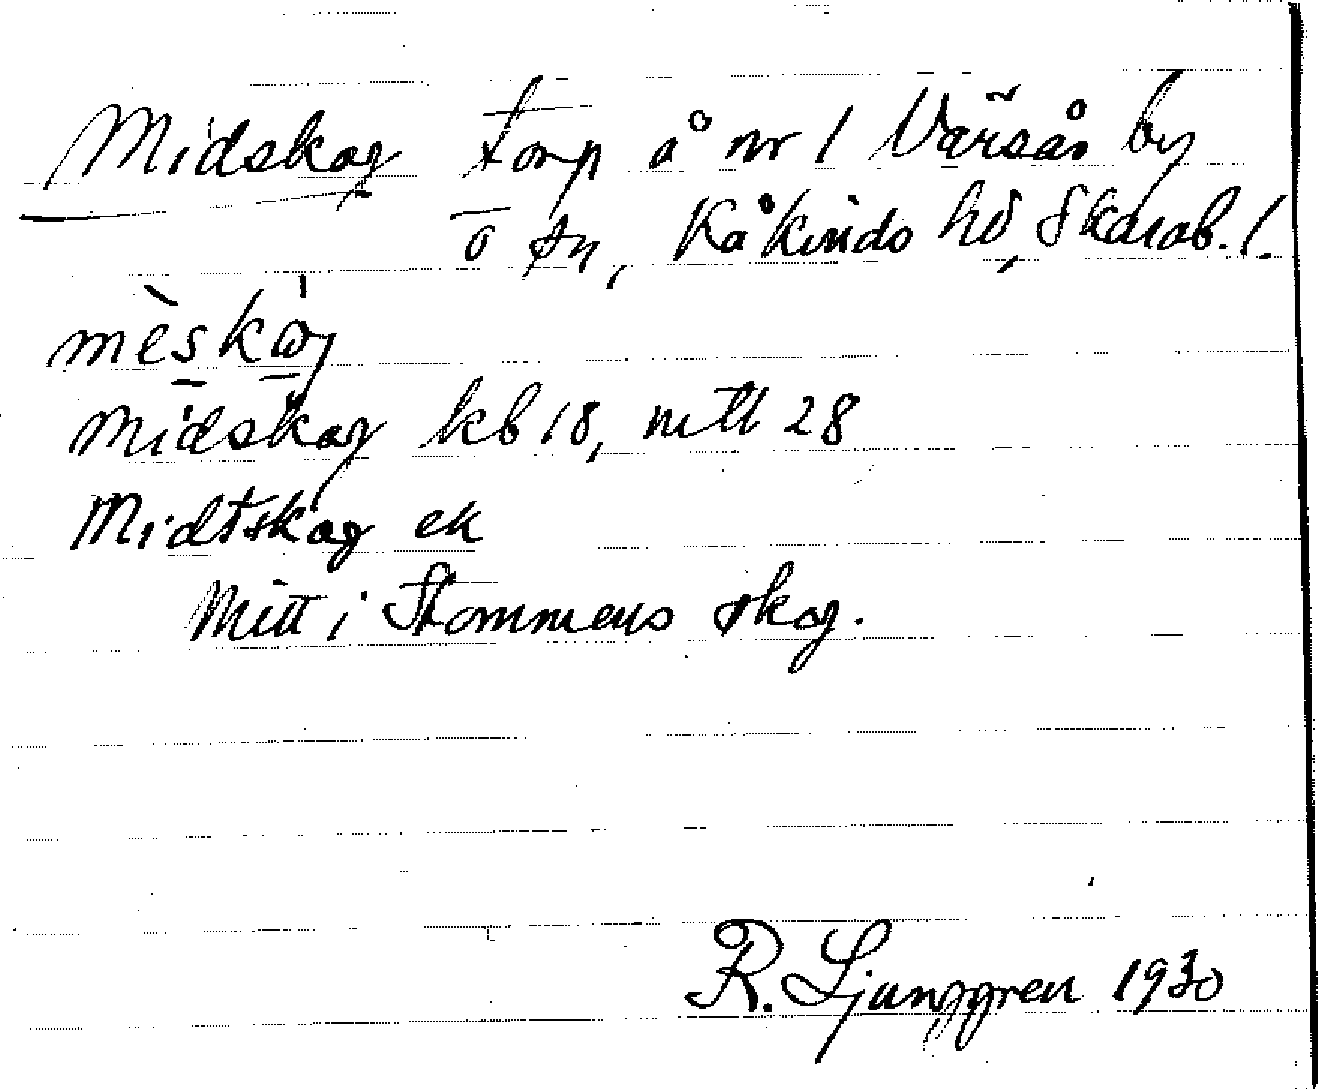 Midskog torp å nr 1 Värsås by
o sn, Kåkinds hd, Skarab. l.
mèskòg
Midskog kb 18, mtl 28
Midtskog ek
Mitt i Stommens skog.
R. Ljunggren 1930